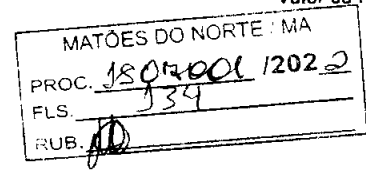 MATÕES DO NORTE / MA
PROC. 1807001 /2022
FLS. 134
RUB.